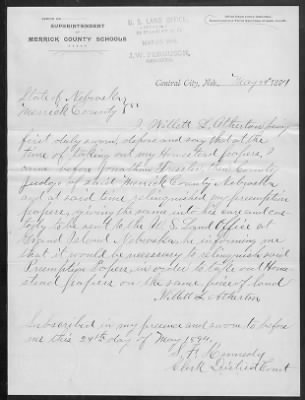 OFFICE OF
SUPERINTENDENT
OF
MERRICK COUNTY SCHOOLS
U. S. LAND OFFICE,
J. W. FERGUSON,
Central City, Neb., May 24 1894
State of Nebraska
Merrick County } ss
I, Willett L. Atherton being
first duly sworn, depose and say that at the
time of taking out my Homestead papers, I
came before Jonathan then County
Judge of said Merrick County Nebraska
and at said time relinquished my premption
papers, giving the same into his care and cus-
tody to be sent to the U. S. Land Office at
Grand Island Nebraska, he informing me
that it would be necessary to relinquish said
Premption Papers, in order to take out Home
stead papers on the same piece of land
Willett L. Atherton
Subscribed in my presence and sworn to before
me this 24th day of May 1894.
Kennedy
Clerk District Court